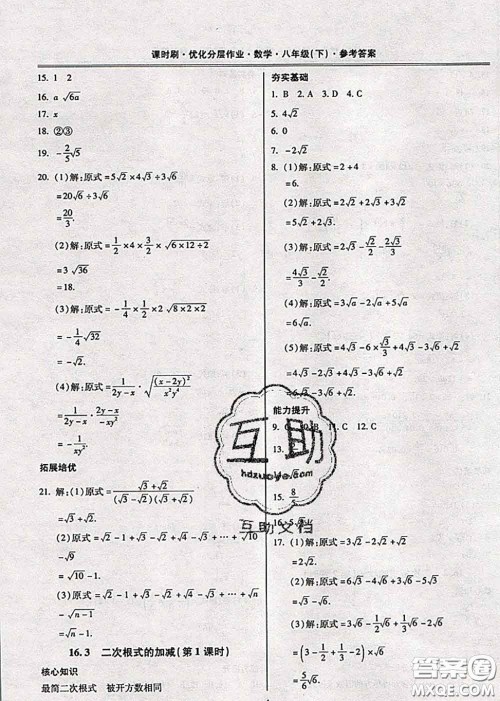 课时刷·优化分层作业·数学·八年级(下)·参考答案
15. 1 2
16. a √6a
17. x
18. ②③
19. -2/5√5
20. (1)解:原式=5√2×4√3÷3√6
=20√6÷3√6
=20/3.
(2)解:原式=1/2×4×3/2×√(6×12÷2)
=3√36
=18.
(3)解:原式=-1/4×1/2×√(8×2×2)
=-1/4√32
=-√2.
(4)解:原式=1/(2y-x)·√((x-2y)²/(x²y⁴))
=1/(2y-x)·(2y-x)/(-xy²)
=-1/(xy²).
拓展培优
21. 解:(1)原式=(√3+√2)/((√3-√2)(√3+√2))
=√3+√2.
(2)原式=√2-1+√3-√2+…+√10-√9
=√10-1.
(3)原式=√2-1+√3-√2+…+√n-√(n-1)
=√n-1.
16.3 二次根式的加减(第1课时)
核心知识
最简二次根式 被开方数相同
夯实基础
1. B 2. A 3. D 4. C
5. 4√2
6. 0
7. -2√2
8. (1)解:原式=2+4
=6.
(2)解:原式=2√2+2√3+3√2
=5√2+2√3.
(3)解:原式=2√3-√2/2-2√3/3
=4√3/3-√2/2.
(4)解:原式=3√a-2√a+5√a
=6√a.
(5)解:原式=4√3-6×√3/3+3√6-√2
=4√3-2√3+3√6-√2
=2√3+3√6-√2.
能力提升
9. C 11. C 12. C
13.
15. 8/5
17. (1)解:原式=3√2-2√2
=√2.
(2)解:原式=6√3-4√6+5√6-3√3
=3√3+√6.
(3)解:原式=3√6-1/2√6+1/3√6-2√6
=(3-1/2+1/3-2)√6
=5/6√6.
互助
hdzuoye.com
互助文档
答案圈
MXQE.COM